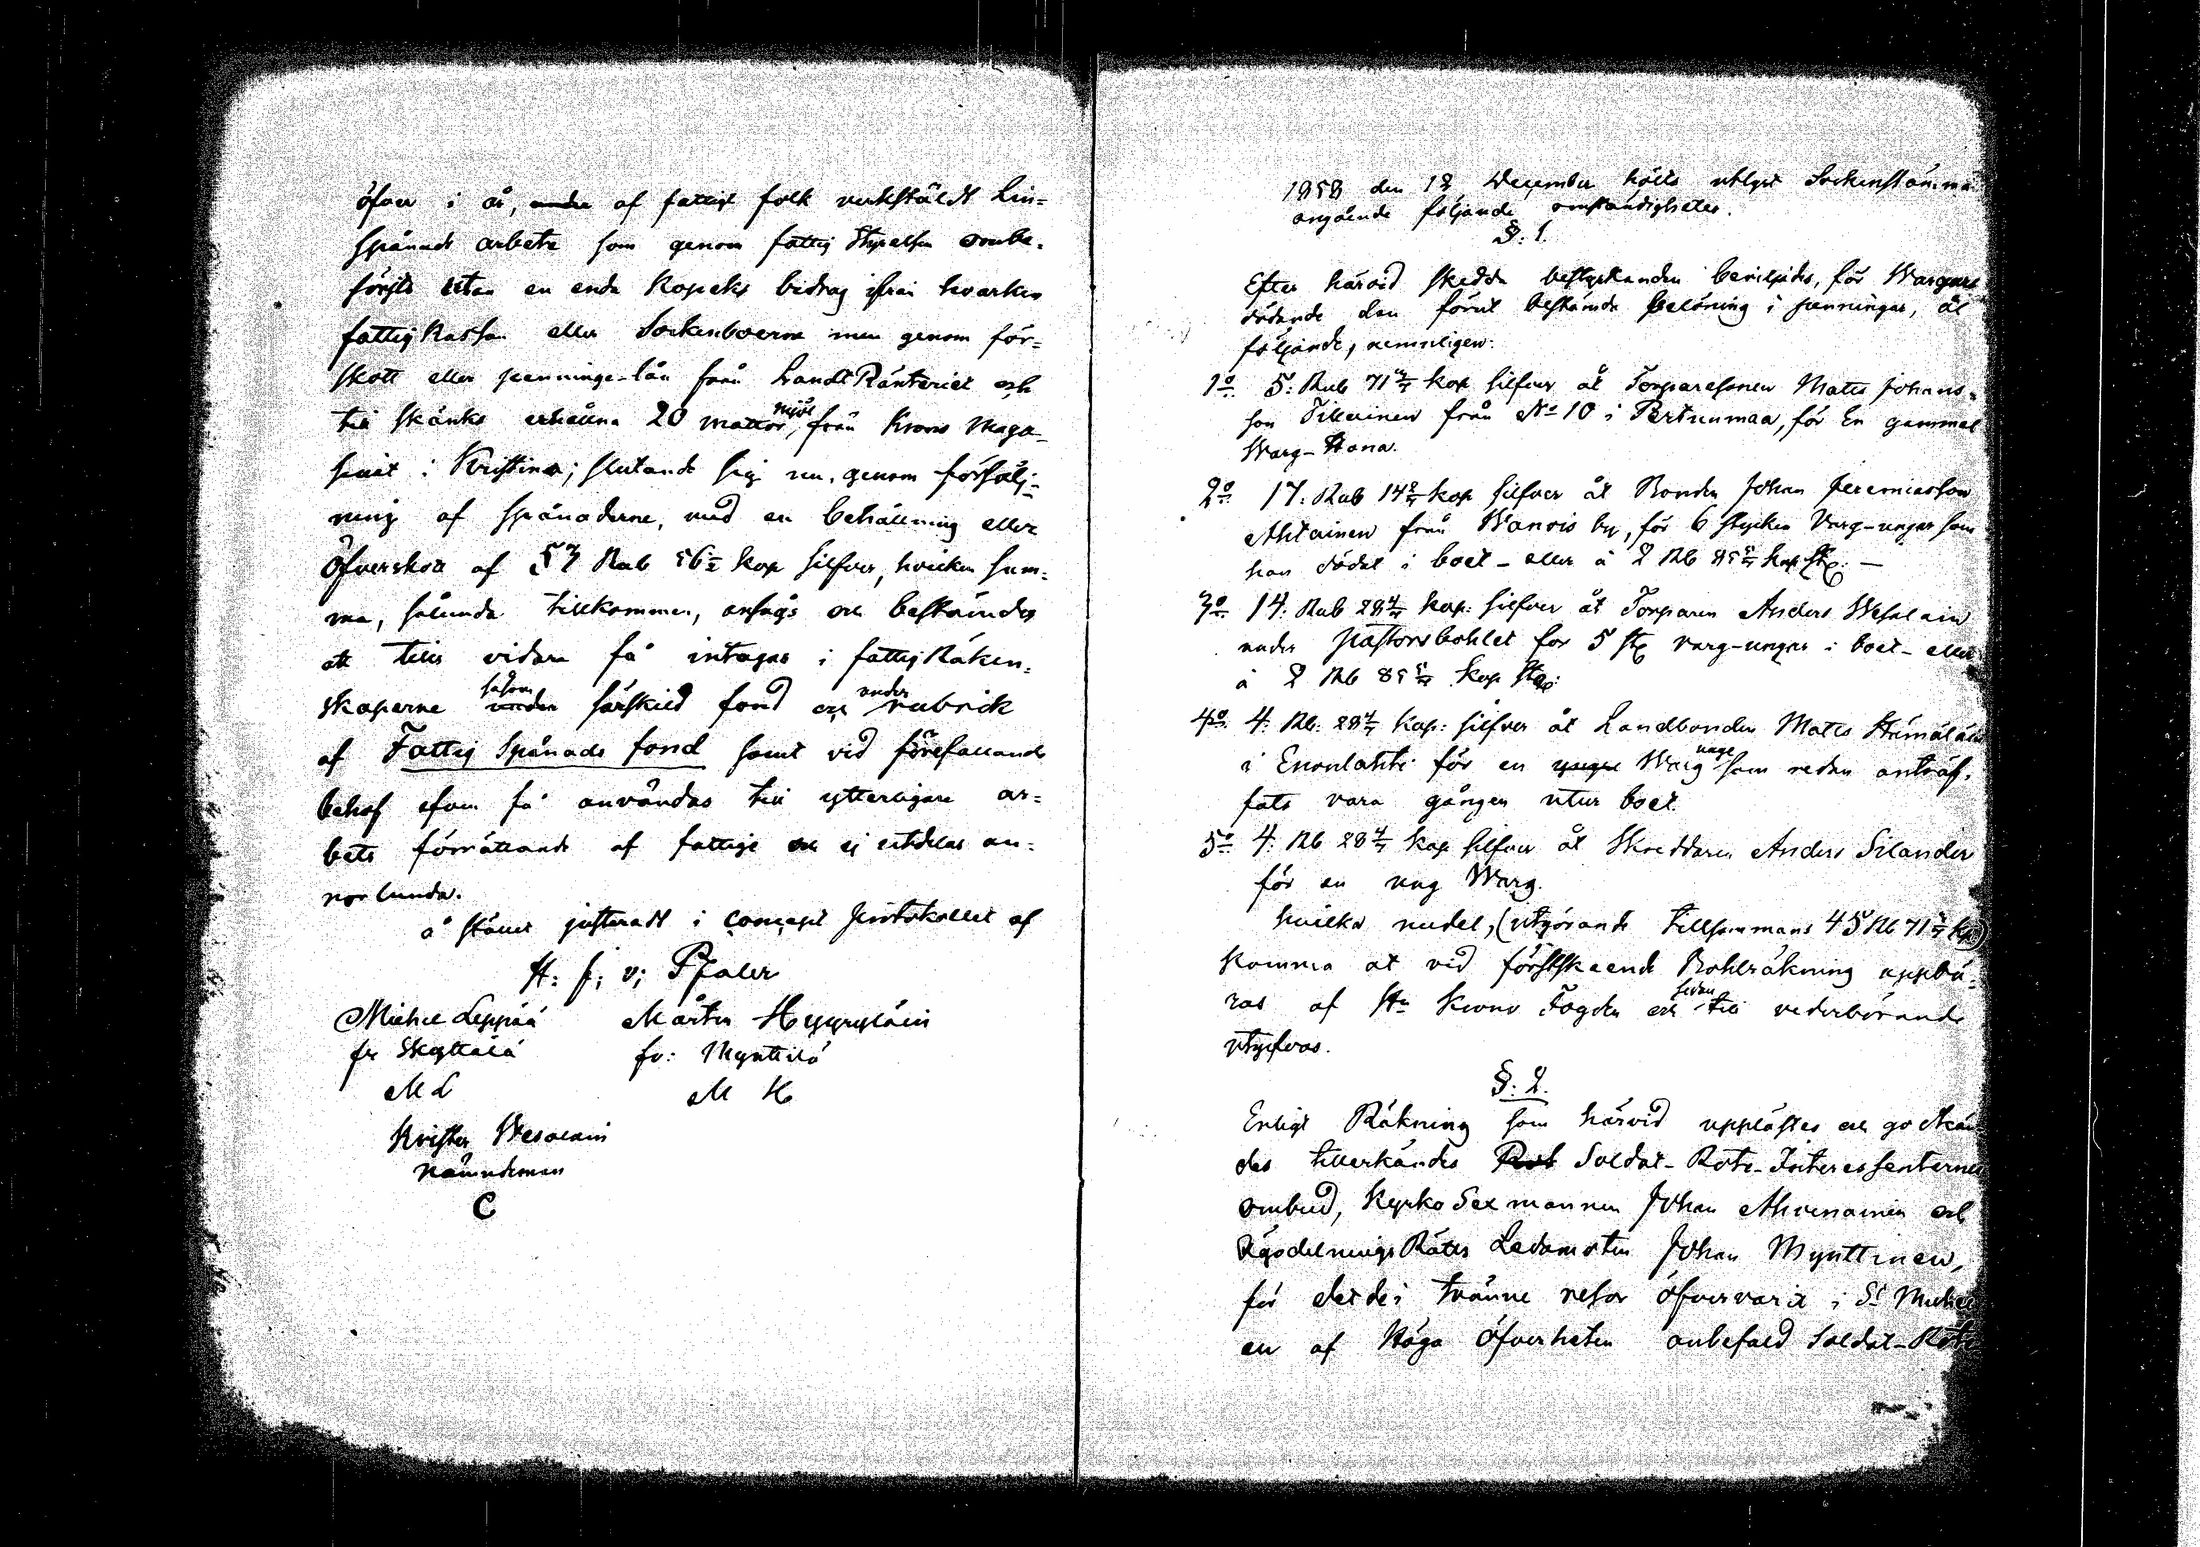 öfver i år, af fattigt folk verkstäldt Lin-
spånads arbete som genom fattig Styrelsen ombe-
sörjts utan en enda Kopeks bidrag ifrån hvarken
fattigKassan eller Sockenboerne men genom för-
skott eller penninge-lån från LandtRänteriet och
till skänks erhållna 20 mattor mjöl, från Krono Maga-
sinet i Kristina; slutande sig nu, genom försälj-
ning af spånaderne, med en behållning eller
Öfverskott af 57 Rub 56½ kop silfver, hvilken sum-
ma, sålunda tillkommen, ansågs och bestämdes
att tills vidare få intagas i fattigRäken-
skaperne såsom särskild fond och under rubrik
af Fattig Spånads fond samt vid förefallande
behof äfven få användas till ytterligare ar-
bets förrättande af fattige och ej utdelas an-
norlunda.
å stället justeradt i concept protokollet af
H: f; v; Pfaler
Michel Leppää Mårten Hyyryläin
fr Skyttälä fr: Mynttilä
M L M H
Krister Wesalain
Nämndeman
C
1858 den 12 December hölls utlyst Sockenstämma
angående följande omständigheter.
§: 1.
Efter härvid skedda bestyrkanden beviljades, för Wargars
dödande den förut bestämda belöning i penningar, åt
följande, nemnligen:
1o 5: Rub 71 3/7 kop silfver åt Torparesonen Mats Johans-
son Tillainen från No 10 i Pertunmaa, för En gammal
Warg-Hona.
2o 17: Rub 14 2/7 kop silfver åt Bonden Johan Jeremiasson
Ahlainen från Wanois by, för 6 stycken Varg-ungar som
han dödat i boet - eller à 2 Rb 85 5/7 kop St.
3o 14: Rub 28 4/7 kop: silfver åt Torparen Anders Wesalain
under Pastorsbohlet för 5 st Varg-ungar i boet - eller
à 2 Rb 85 5/7 kop St:
4o 4: Rb: 28 4/7 kop: silfver åt Landbonden Mats Hämäläin
i Enonlahti för en Warg unge som redan anträf-
fats vara gången utur boet.
5o 4: Rb 28 4/7 kop silfver åt Skreddaren Anders Silander
för en ung Warg.
hvilka medel, (utgörande tillsammans 45 Rb 71 3/7 kop)
komma at vid förstskeende Bohlräkning uppbä-
ras af Hr Krono Fogden och sedan till vederbörande
utgifvas.
§: 2.
Enligt Räkning som härvid upplästes och godkän
des tillerkändes Soldat-Rote-Interessenternes
ombud, Kyrko Sexmannen Johan Ahvenainen och
ÄgodelningsRätts Ledamoten Johan Mynttinen,
för det de i tvänne resor öfvervarit i St Michel
en af Höga Öfverheten anbefald Soldat-Rote